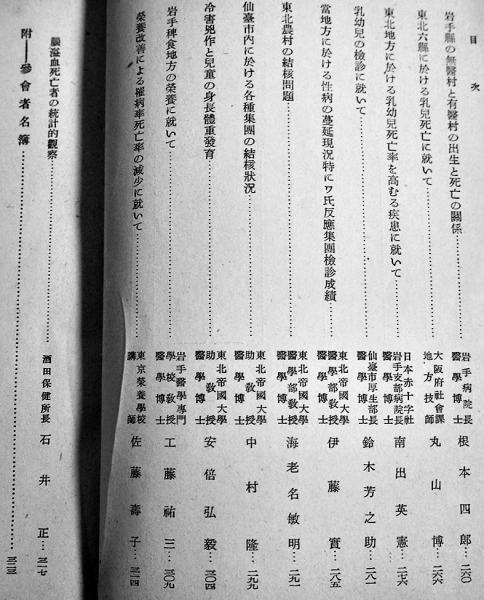 目次
岩手縣の無醫村と有醫村の出生と死亡の關係……岩手病院長 醫學博士 根本四郎…二六〇
東北六縣に於ける乳兒死亡に就いて……大阪府社會課 地方技師 丸山博…二六六
東北地方に於ける乳幼兒死亡率を高むる疾患に就いて……日本赤十字社 岩手支部病院長 醫學博士 南出英憲…二七六
乳幼兒の檢診に就いて……仙臺市厚生部長 醫學博士 鈴木芳之助…二八一
當地方に於ける性病の蔓延現況特にワ氏反應集團檢診成績……東北帝國大學 醫學部敎授 醫學博士 伊藤實…二八五
東北農村の結核問題……東北帝國大學 醫學部敎授 醫學博士 海老名敏明…二九一
仙臺市內に於ける各種集團の結核狀況……東北帝國大學 助敎授 醫學博士 中村隆…二九九
冷害兇作と兒童の身長體重發育……東北帝國大學 助敎授 醫學博士 安倍弘毅…三〇四
岩手稗食地方の榮養に就いて……岩手醫學專門 學校敎授 醫學博士 工藤祐三…三〇九
榮養改善による罹病率死亡率の減少に就いて……東京榮養學校 講師 佐藤壽子…三一四
腦溢血死亡者の統計的觀察……酒田保健所長 石井正…三一七
附―參會者名簿……三三